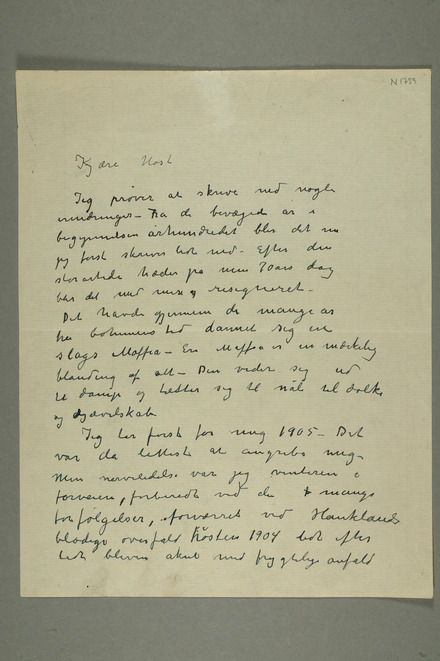 N 1759
Kjære Host
Jeg prøver at skrive ned nogle
erindringer – Fra de bevægede år i
begyndelsen århundredet blir det nu
jeg først skriver lidt ned – Efter den
storartede hæder på min 70års dag
blir det med mere og resigneret –
Det havde gjennem de mange år
fra bohemens tid dannet sig en
slags Maffia – En Maffia er en mærkelig
blanding af alt – Den veder sig ud
til damp og tætter sig til nåle til dolke
og djævelskab
Jeg tar først for mig 1905 – Det
var da lettest at angribe mig –
Min nervelidelse var jeg vinteren i
forveien, forberedt ved de mange
forfølgelser, forværret ved Hauklands
blodige overfald høsten 1904 lidt efter
lidt bleven akut med frygtelige anfald